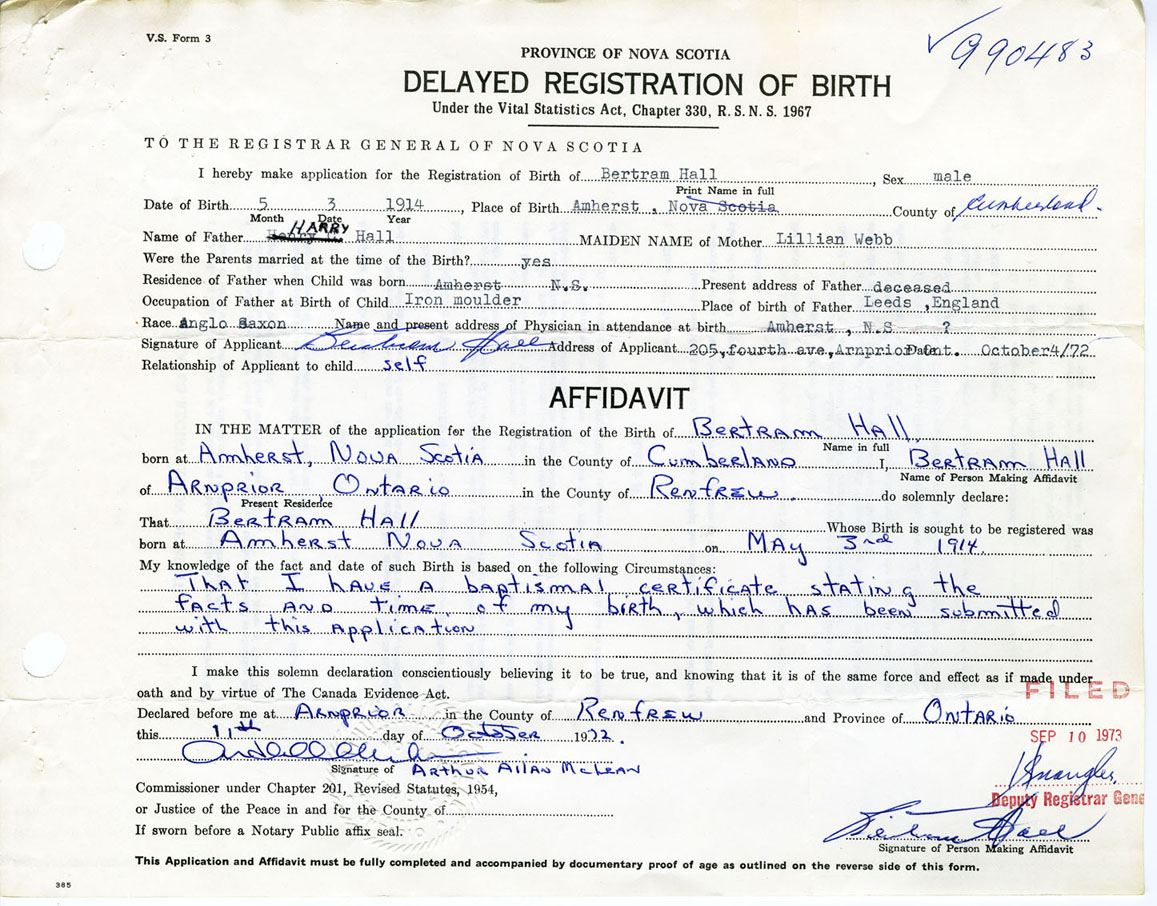 V.S. Form 3
✓990483
PROVINCE OF NOVA SCOTIA
DELAYED REGISTRATION OF BIRTH
Under the Vital Statistics Act, Chapter 330, R.S.N.S. 1967
TO THE REGISTRAR GENERAL OF NOVA SCOTIA
I hereby make application for the Registration of Birth of Bertram Hall, Sex male
Print Name in full
Date of Birth 5 3 1914, Place of Birth Amherst, Nova Scotia County of Cumberland.
Month Date Year
HARRY
Name of Father Henry C. Hall MAIDEN NAME of Mother Lillian Webb
Were the Parents married at the time of the Birth? yes
Residence of Father when Child was born Amherst N.S. Present address of Father deceased
Occupation of Father at Birth of Child Iron moulder Place of birth of Father Leeds ,England
Race Anglo Saxon Name and present address of Physician in attendance at birth Amherst , N.S ?
Signature of Applicant Bertram Hall Address of Applicant 205,fourth ave,Arnprior Ont. Date October4/72
Relationship of Applicant to child self
AFFIDAVIT
IN THE MATTER of the application for the Registration of the Birth of Bertram Hall.
Name in full
born at Amherst, Nova Scotia in the County of Cumberland I, Bertram Hall
Name of Person Making Affidavit
of Arnprior, Ontario in the County of Renfrew. do solemnly declare:
Present Residence
That Bertram Hall Whose Birth is sought to be registered was
born at Amherst Nova Scotia on May 3rd 1914.
My knowledge of the fact and date of such Birth is based on the following Circumstances:
That I have a baptismal certificate stating the
facts and time of my birth, which has been submitted
with this application
I make this solemn declaration conscientiously believing it to be true, and knowing that it is of the same force and effect as if made under
oath and by virtue of The Canada Evidence Act.
FILED
Declared before me at Arnprior in the County of Renfrew and Province of Ontario
this 11th day of October 1972.
SEP 10 1973
Signature of Arthur Allan McLean
Commissioner under Chapter 201, Revised Statutes, 1954,
Deputy Registrar Gene
or Justice of the Peace in and for the County of
If sworn before a Notary Public affix seal.
Bertram Hall
Signature of Person Making Affidavit
This Application and Affidavit must be fully completed and accompanied by documentary proof of age as outlined on the reverse side of this form.
385